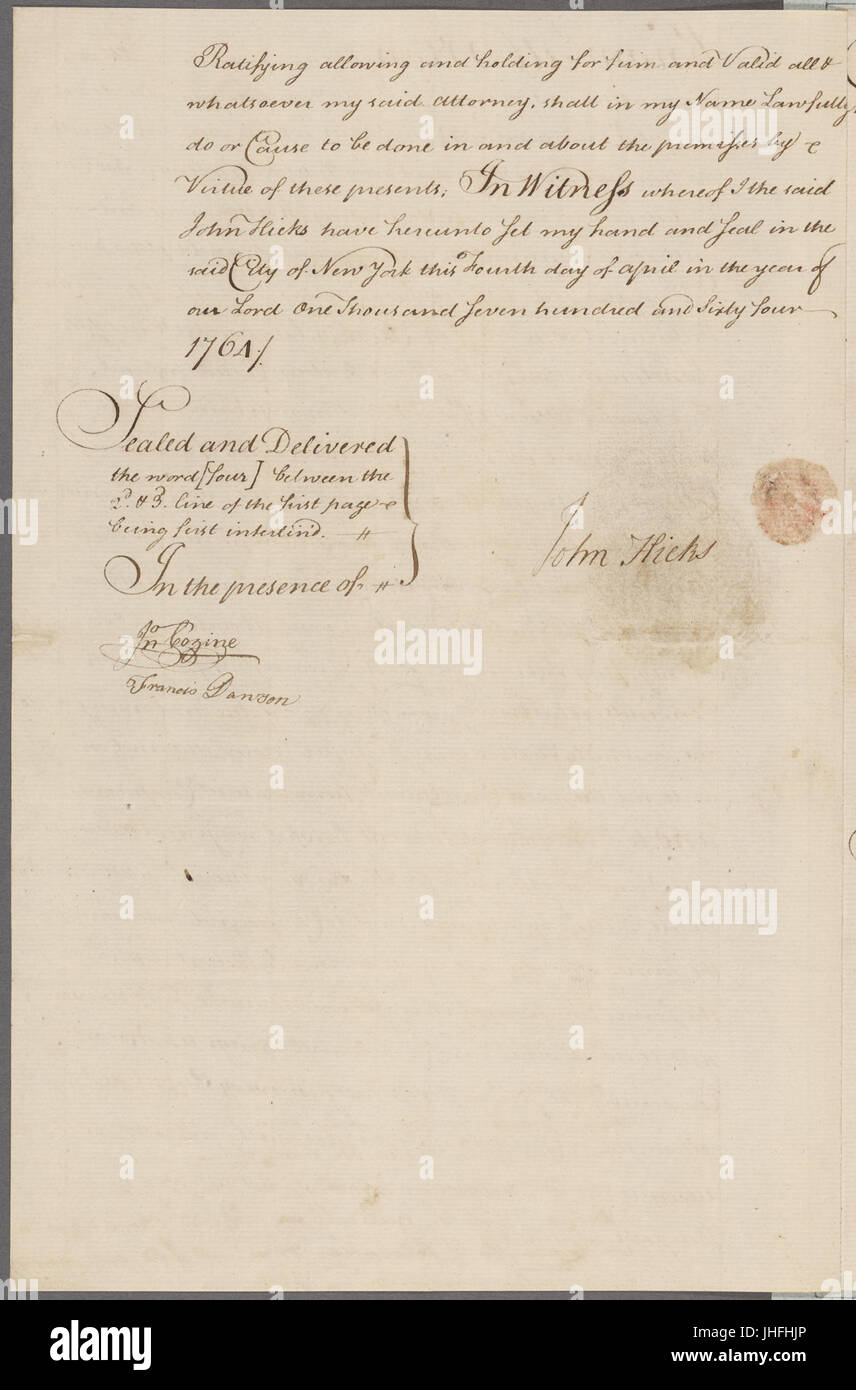 Ratifying allowing and holding for firm and Valid all &
whatsoever my said attorney, shall in my Name Lawfully
do or Cause to be done in and about the premisses by
Virtue of these presents; In Witness whereof I the said
John Hicks have hereunto Set my hand and Seal in the
said City of New York this Fourth day of april in the year of
our Lord One Thousand Seven hundred and Sixty four
1764/.
Sealed and Delivered
the word [four] between the
2d. & 3. line of the first page
being first interlin'd.
In the presence of
John Hicks
Jno Cozine
Francis Dawson
a alamy stock photo
alamy
JHFHJP
www.alamy.com